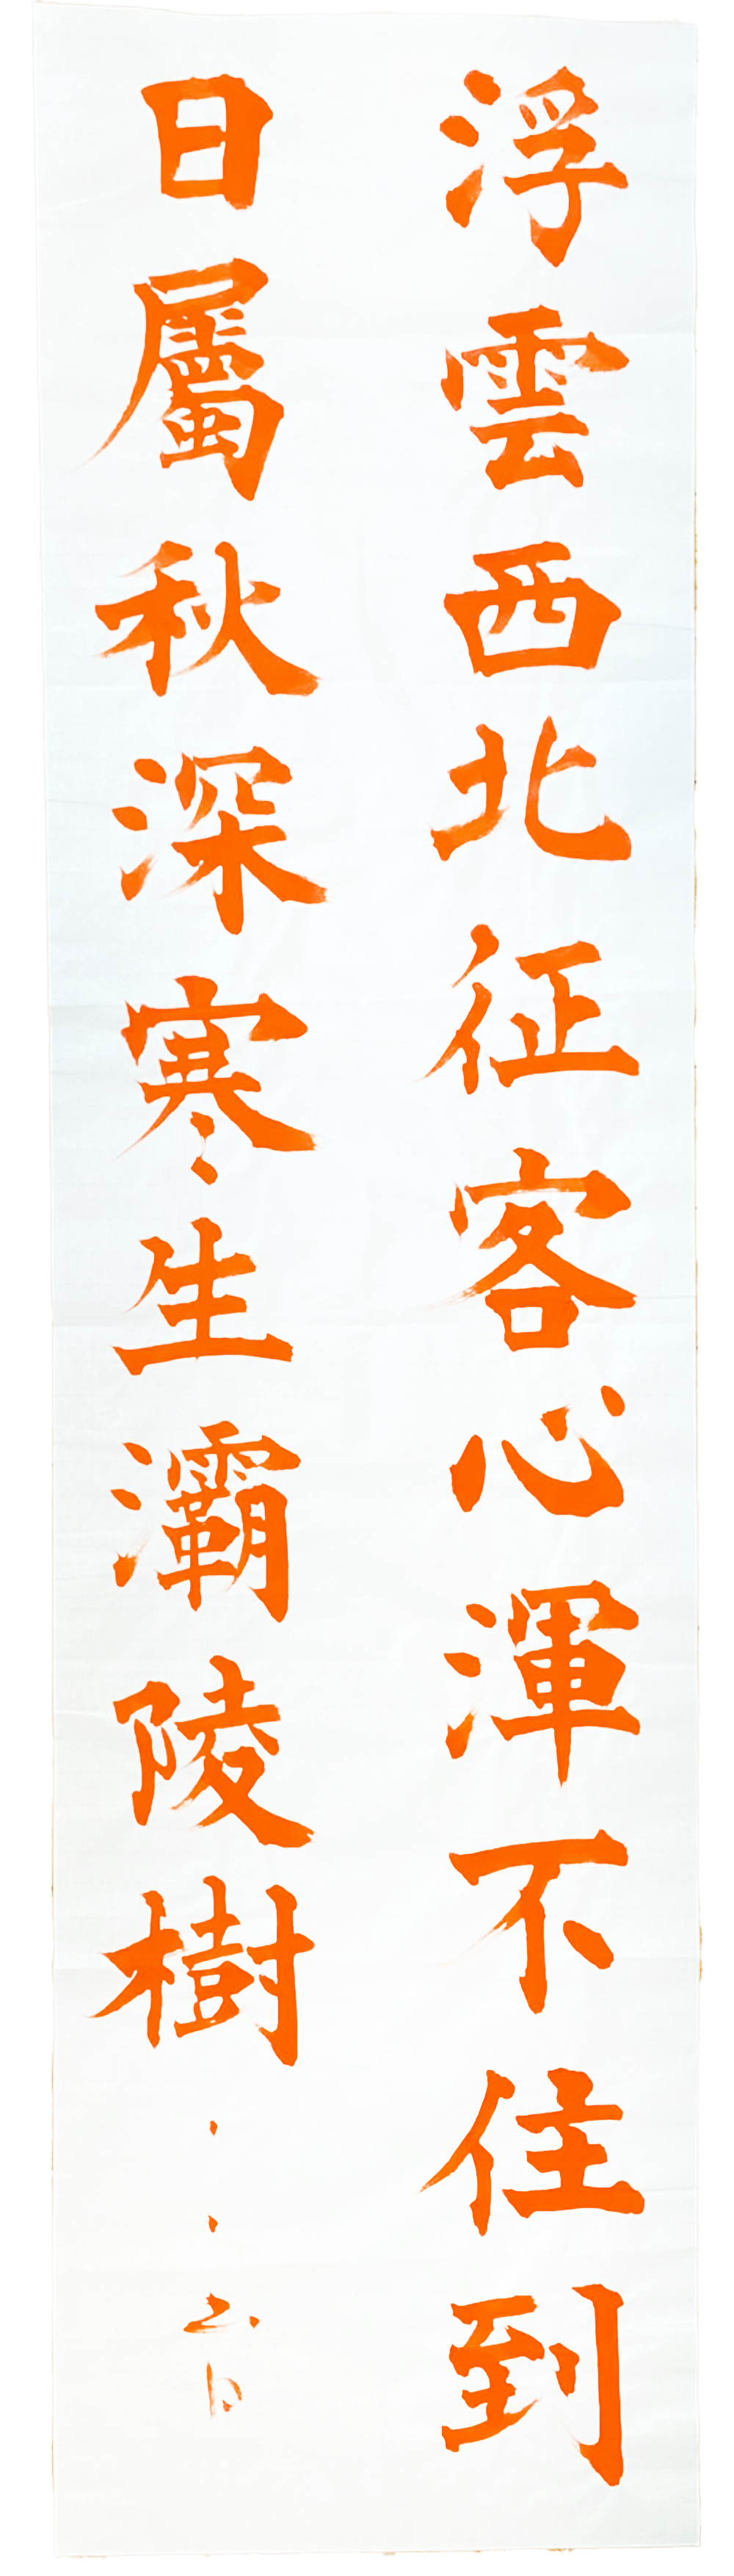 浮雲西北征客心渾不住到
日屬秋深寒生灞陵樹